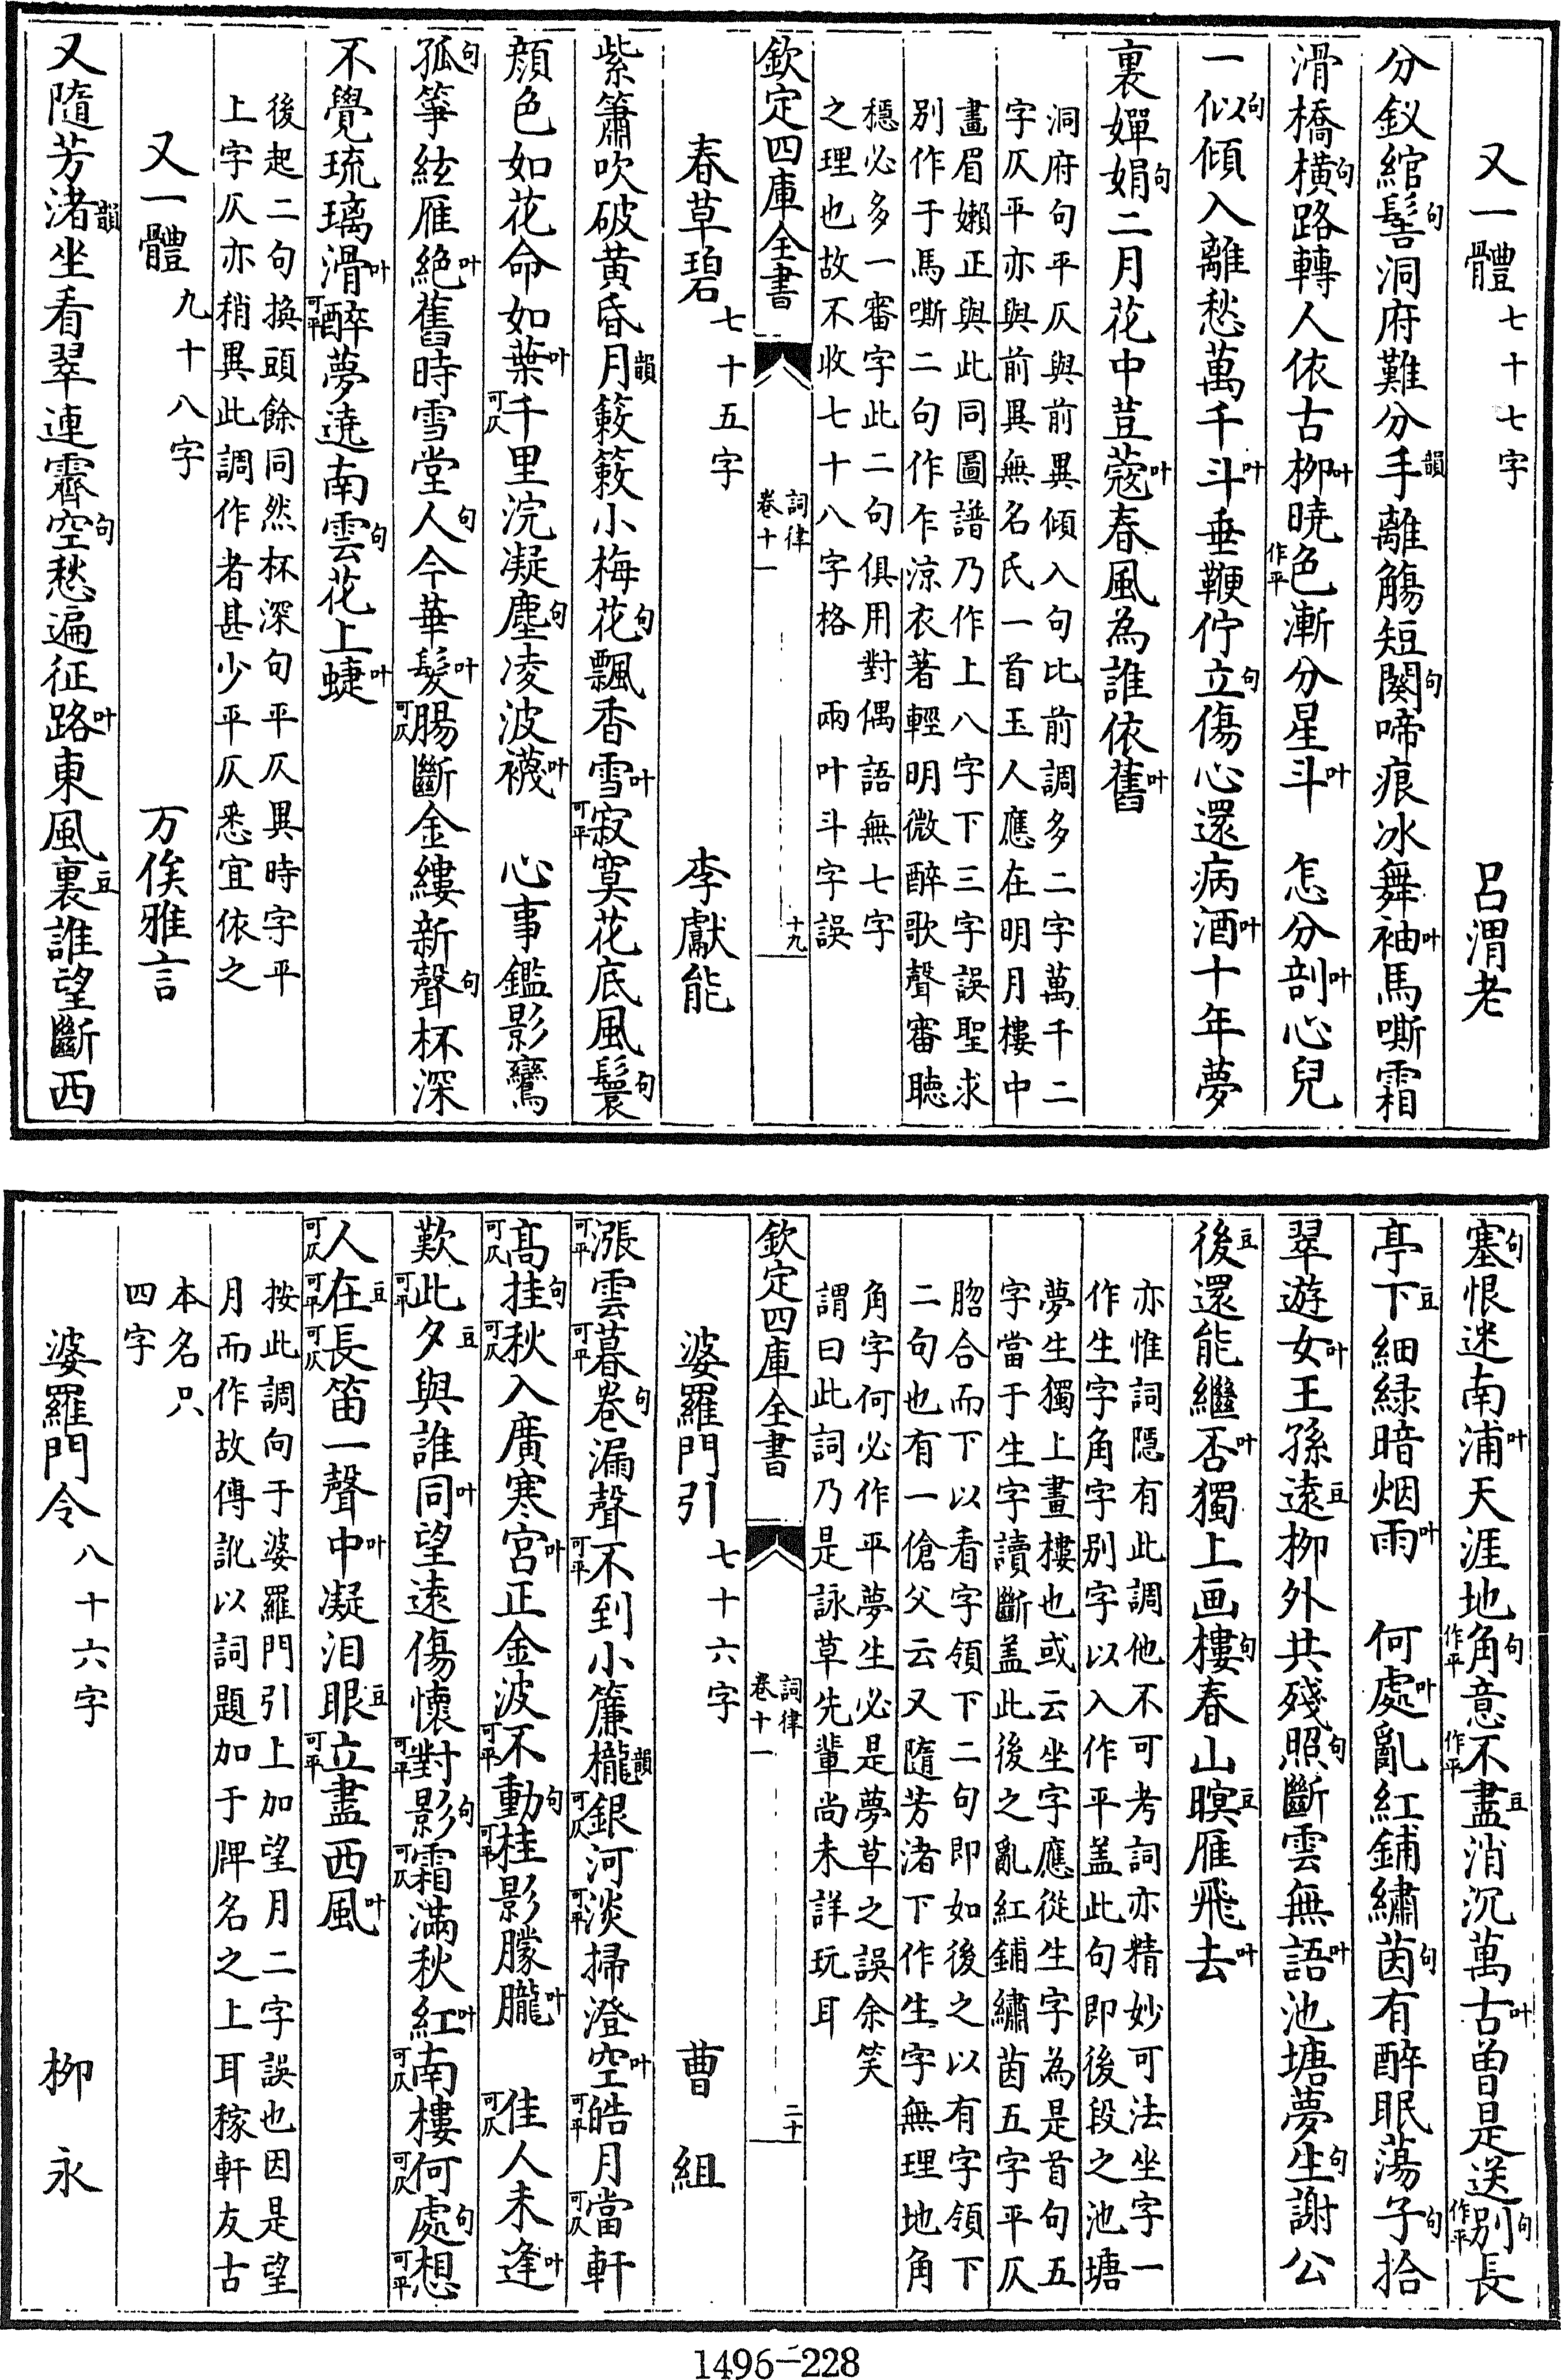 又一體七十七字　呂渭老
分釵綰髻句洞府難分手韻離觴短闋句啼痕冰舞袖叶馬嘶霜
滑橋横句路轉人依古柳叶暁色作平漸分星斗叶　怎分剖叶心兒
一似句傾入離愁萬千斗叶垂鞭佇立句傷心還病酒叶十年夢
裏嬋娟句二月花中荳蔻叶春風為誰依舊叶
洞府句平仄與前異傾入句比前調多二字萬千二
字仄平亦與前異無名氏一首玉人應在明月樓中
畫眉嬾正與此同圖譜乃作上八字下三字誤聖求
别作于馬嘶二句作乍涼衣著輕明微醉歌聲審聴
穏必多一審字此二句俱用對偶語無七字
之理也故不收七十八字格　兩叶斗字誤
欽定四庫全書　詞律卷十一　十九
春草碧七十五字　李獻能
紫簫吹破黄昏月韻簌簌小梅花句飄香雪叶寂可平寞花底風鬟句
顔色如花命如葉叶千可仄里浣凝塵句凌波襪叶　心事鑑影鸞
孤句箏絃雁絶叶舊時雪堂人句今華髮叶腸可仄斷金縷新聲句杯深
不覺琉璃滑叶醉可平夢遶南雲句花上蜨叶
後起二句換頭餘同然杯深句平仄異時字平
上字仄亦稍異此調作者甚少平仄悉宜依之
又一體九十八字　万俟雅言
又隨芳渚韻坐看翠連霽空句愁遍征路叶東風裏豆誰望斷西
塞句恨迷南浦叶天涯地角作平句意不作平盡豆消沉萬古叶曽是送别作平句長
亭下豆細緑暗烟雨叶　何處叶亂紅鋪繡茵句有醉眠蕩子句拾
翠遊女叶王孫遠豆柳外共殘照句斷雲無語叶池塘夢生句謝公
後豆還能繼否叶獨上画樓句春山暝豆雁飛去叶
亦惟詞隠有此調他不可考詞亦精妙可法坐字一
作生字角字别字以入作平盖此句即後段之池塘
夢生獨上畫樓也或云坐字應從生字為是首句五
字當于生字讀斷盖此後之亂紅鋪繡茵五字平仄
脗合而下以看字領下二句即如後之以有字領下
二句也有一傖父云又隨芳渚下作生字無理地角
角字何必作平夢生必是夢草之誤余笑
謂曰此詞乃是詠草先輩尚未詳玩耳
欽定四庫全書　詞律卷十一　二十
婆羅門引七十六字　曹組
漲可平雲暮可平卷句漏聲不可平到小簾櫳韻銀可仄河淡可平掃澄空叶皓可平月當可仄軒
髙可仄挂句秋可仄入廣寒宮叶正金波不可平動句桂可平影朦朧叶　佳可仄人未逢叶
歎此可平夕豆與誰同叶望遠傷懷對可平影句霜可仄滿秋紅叶南可仄樓何可仄處句想可平
人可仄在可平豆長可仄笛一聲中叶凝泪眼豆立可平盡西風叶
按此調向于婆羅門引上加望月二字誤也因是望
月而作故傳訛以詞題加于牌名之上耳稼軒友古
本名只
四字
婆羅門令八十六字　柳永
1496-228